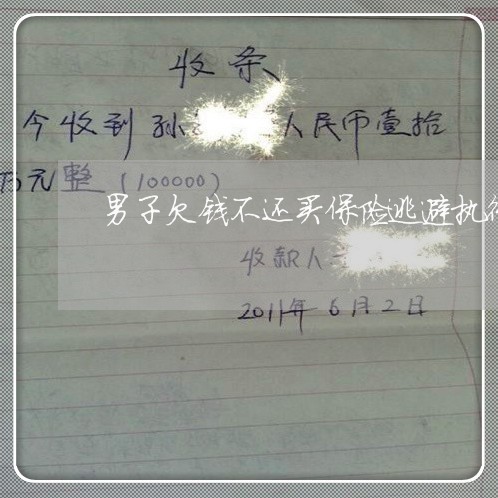 收条
今收到孙 人民币壹拾
万元整(100000)
男子欠钱不还买保险逃避执行
收款人
2011年6月2日